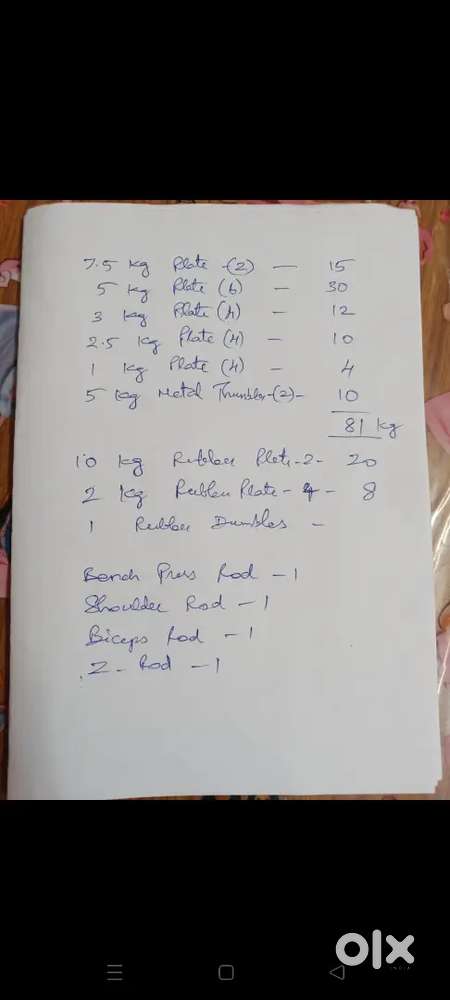 7.5 kg Plate -(2) — 15
5 kg Plate (6) — 30
3 kg Plate (4) — 12
2.5 kg Plate (4) — 10
1 kg Plate (4) — 4
5 kg Metal -(2)- 10
81 kg
10 kg Rubber Plate - 2 - 20
2 kg Rubber Plate - 4 - 8
1 Rubber Dumbles -
Bench Press Rod - 1
Shoulder Rod - 1
Biceps Rod - 1
Z - Rod - 1
olx
INDIA